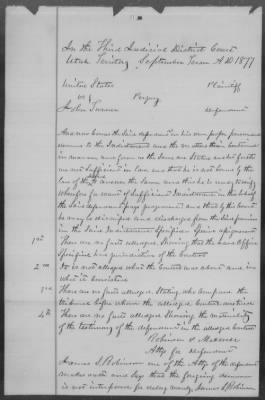 In the Third Judicial District Court
Utah Territory September Term A.D 1877
United States Plaintiff
vs } Perjury
John Turner defendant
And now comes the said defendant in his own proper person and
demurs to the Indictment and the matters therein contained
in manner and form as the same are stated and set forth
are not sufficient in law and that he is not bound by the
law of the to answer the same and this he is ready to verify
wherefore for want of sufficient Indictment in the behalf
the said defendant prays judgement and that by the Court
he may be dismissed and discharged from the said premises
in the said Indictment specified
1st There are no facts alleged, showing that the
specified has jurisdiction of the
2nd It is not alleged what the Contest was about and in
what it consisted
3rd There are no facts alleged, stating who compose the
tribunal before whom the alleged Contest
4th There are no facts alleged showing the materiality
of the testimony of the defendant in the alleged Contest
Robinson &
Attys for defendant
James S. Robinson one of the Attys of the defendant
makes oath and says that the foregoing demurrer
is not interposed for delay merely James S. Robinson